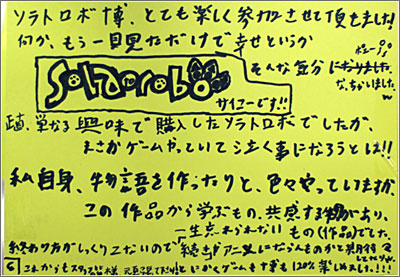 ソラトロボ博、とても楽しく参加させて頂きました！
何か、もう一目見ただけで幸せというか
そんな気分
なっちゃいました。
Solatorobo
サイコーです!!
正直、単なる興味で購入したソラトロボでしたが、
まさかゲームやっていて泣く事になろうとは!!
私自身、物語を作ったりと、色々やっていますが、
この作品から学ぶもの、共感する物があり、
一生忘れられないもの(作品)でした。
終わり方がしっくりこないので
これからもスタッフの皆様
とにかくゲームもすごも120%楽しめました!!!